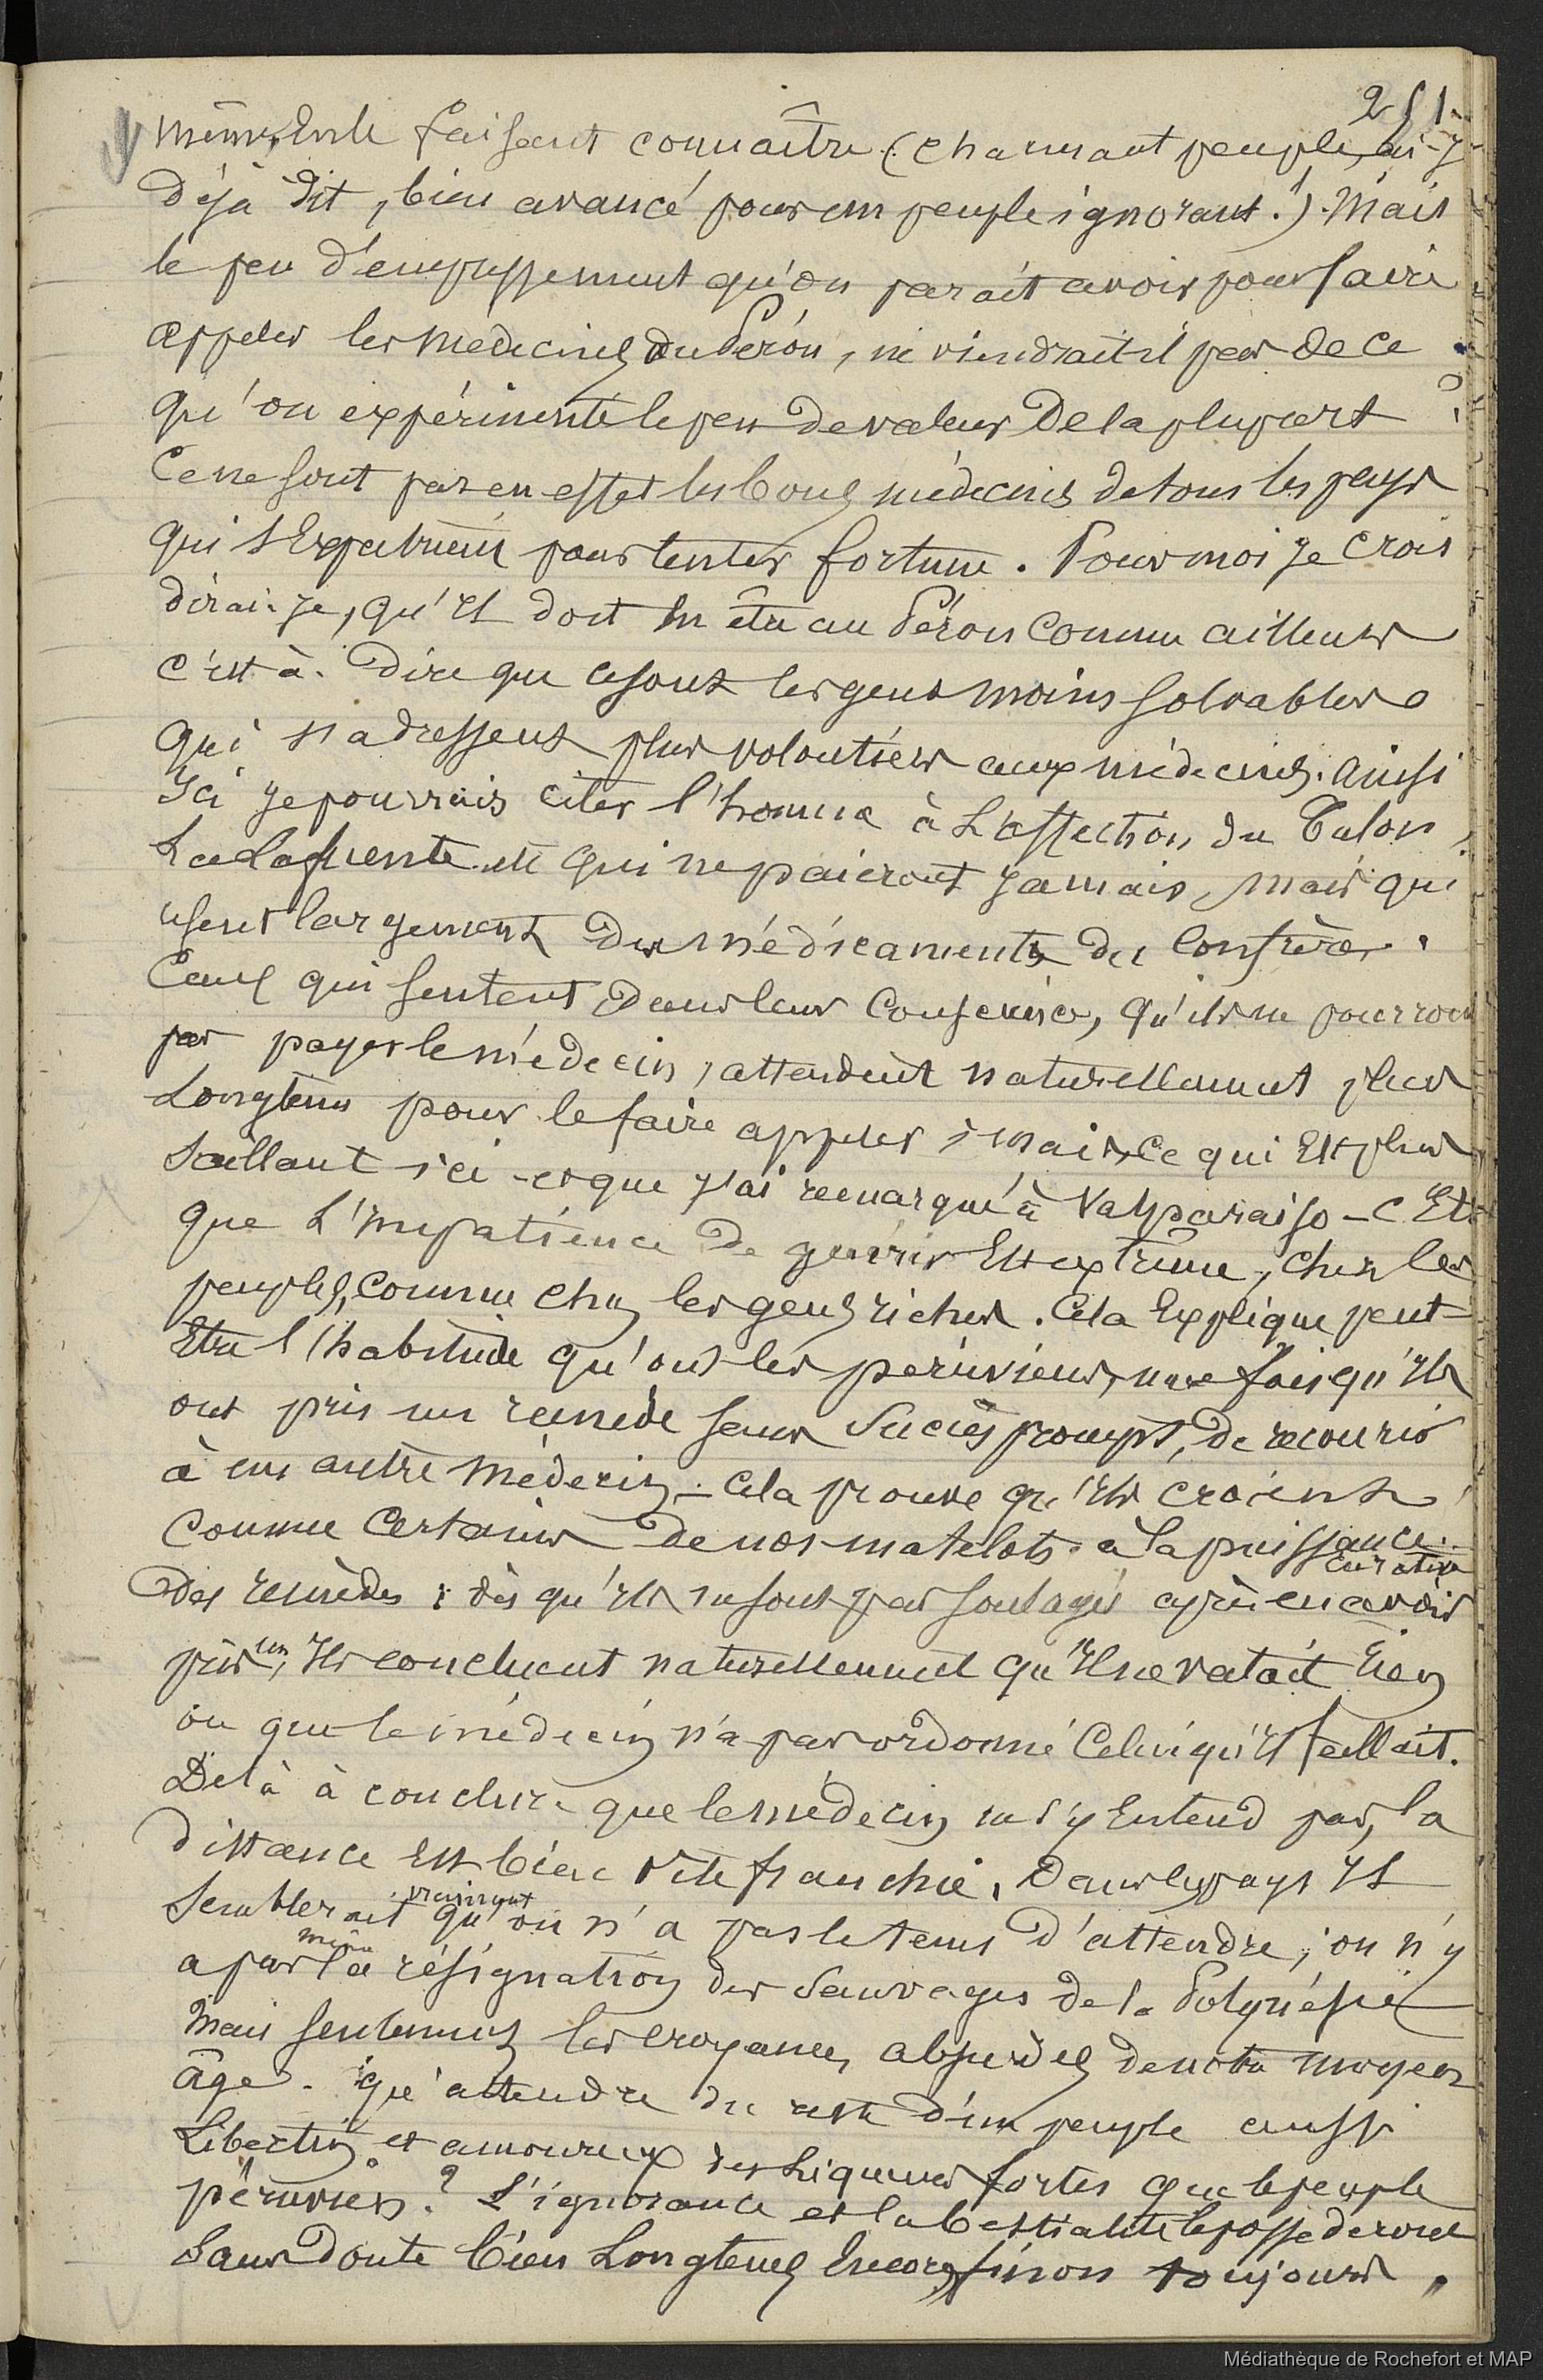 251
même, en le faisant connaître (charmant peuple, ai-je
déjà dit, bien avancé pour un peuple ignorant!). Mais
le peu d'empressement qu'on paraît avoir pour faire
appeler les médecins du Pérou, ne viendrait il pas de ce
qu'on expérimente le peu de valeur de la plupart ?
Ce ne sont pas en effet les bons médecins de tous les pays
qui s'expatrient pour tenter fortune. Pour moi je crois
dirai-je, qu'il doit en être au Pérou comme ailleurs
c'est à dire que ce sont les gens moins solvables
qui s'adressent plus volontiers aux médecins. Ainsi
ici je pourrais citer l'homme à l'affection du talon,
La Lafuente etc qui ne paieront jamais, mais qui
usent largement des médicaments du confrère.
Ceux qui sentent dans leur conscience, qu'ils ne pourront
pas payer le médecin, attendent naturellement plus
longtems pour le faire appeler ; mais, ce qui est plus
saillant ici - et que j'ai remarqué à Valparaiso - c'est
que l'impatience de guérir est extrême, chez les
peuples, comme chez les gens riches. Cela explique peut-
être l'habitude qu'ont les péruviens, une fois qu'ils
ont pris un remède sans succès prompt, de recourir
à un autre médecin. - Cela prouve qu'ils croient
comme certains de nos matelots à la puissance
curative
des remèdes : dès qu'ils ne sont pas soulagés après en avoir
pris un, ils concluent naturellement qu'il ne valait rien
ou que le médecin n'a pas ordonné celui qu'il fallait.
De là à conclure que le médecin ne s'y entend pas, la
distance est bien vite franchie. Dans les pays il
semblerait vraiment qu'on n'a pas le tems d'attendre ; on n'y
a pas même la résignation des sauvages de la Polynésie
mais seulement les croyances absurdes de notre moyen
âge. qu'attendre du reste d'un peuple aussi
libertin et amoureux des liqueurs fortes que le peuple
péruvien ? L'ignorance et la bestialité le possèderont
sans doute bien longtems encore, sinon toujours.
Médiathèque de Rochefort et MAP